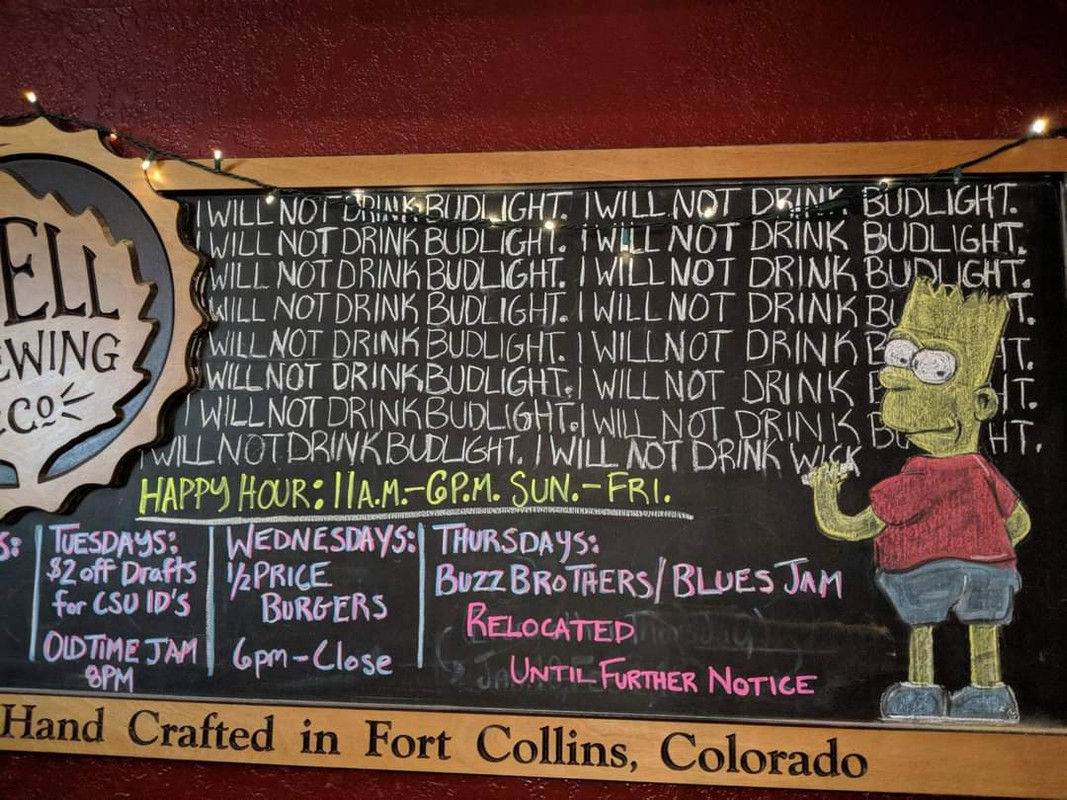 ELL
EWING
Co
I WILL NOT DRINK BUDLIGHT. I WILL NOT DRINK BUDLIGHT.
WILL NOT DRINK BUDLIGHT. I WILL NOT DRINK BUDLIGHT.
WILL NOT DRINK BUDLIGHT. I WILL NOT DRINK BUDLIGHT.
WILL NOT DRINK BUDLIGHT. I WILL NOT DRINK BU T.
WILL NOT DRINK BUDLIGHT. I WILL NOT DRINK B HT.
WILL NOT DRINK BUDLIGHT. I WILL NOT DRINK B HT.
I WILL NOT DRINK BUDLIGHT. I WILL NOT DRINK BU HT.
I WILL NOT DRINK BUDLIGHT. I WILL NOT DRINK
HAPPY HOUR: 11A.M.-6P.M. SUN.-FRI.
S:
TUESDAYS:
$2 off Drafts
for CSU ID'S
OLD TIME JAM
8PM
WEDNESDAYS:
1/2 PRICE
BURGERS
6pm-Close
THURSDAYS:
BUZZ BROTHERS/BLUES JAM
RELOCATED
UNTIL FURTHER NOTICE
Hand Crafted in Fort Collins, Colorado